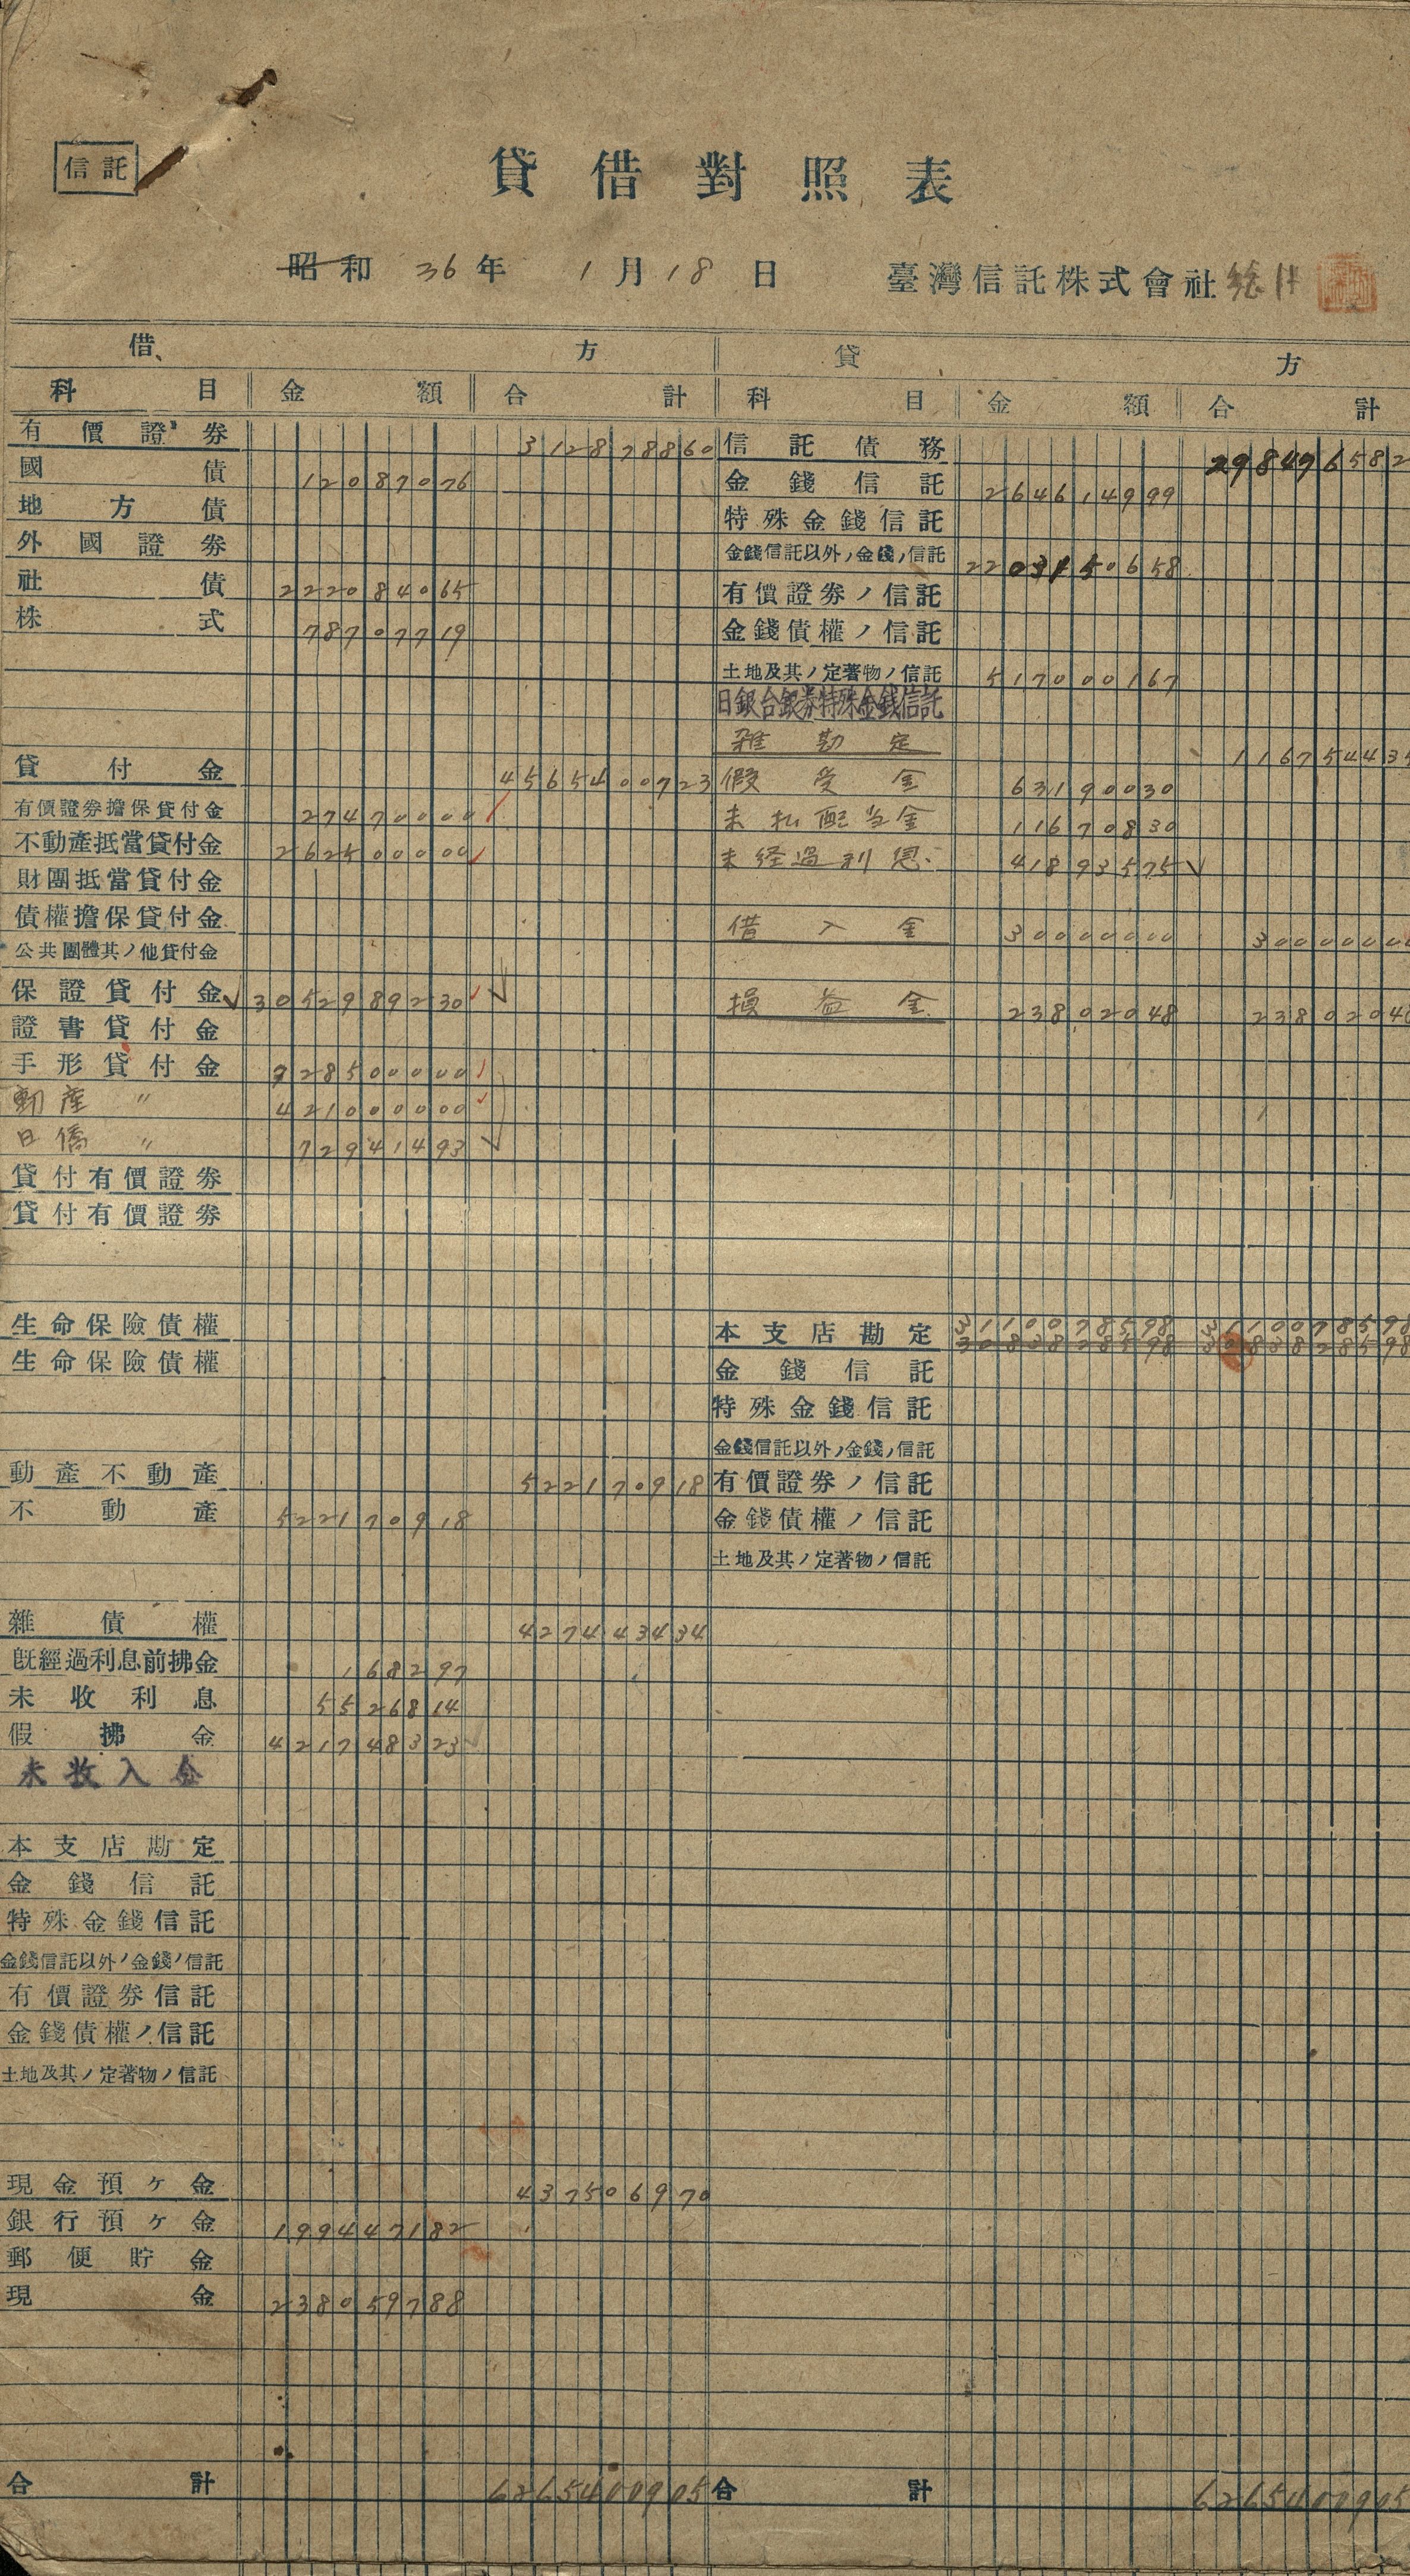 信託
貸借對照表
昭和 36年 1月18日 臺灣信託株式會社
借方 貸方
科目 金額 合計 科目 金額 合計
有價證券 312878860 信託債務 298476582
國債 12087076 金錢信託 264614999
地方債 特殊金錢信託
外國證券 金錢信託以外ノ金錢ノ信託 2203150658
社債 222084065 有價證券ノ信託
株式 78707719 金錢債權ノ信託
土地及其ノ定著物ノ信託 517000167
日銀台銀券特殊金錢信託
雜勘定 116754435
貸付金 4565400723 假受金 63190030
有價證券擔保貸付金 27470000 未払配当金 11670830
不動產抵當貸付金 262500000 未経過利息 41893575
財團抵當貸付金
債權擔保貸付金 借入金 30000000 30000000
公共團體其ノ他貸付金
保證貸付金 3052989230 損益金 23802048 23802048
證書貸付金
手形貸付金 728500000
動産 〃 421000000
日僑 〃 72941493
貸付有價證券
貸付有價證券
生命保險債權 本支店勘定 3110078598 3110078598
生命保險債權 金錢信託
特殊金錢信託
金錢信託以外ノ金錢ノ信託
動產不動產 522170918 有價證券ノ信託
不動產 522170918 金錢債權ノ信託
土地及其ノ定著物ノ信託
雜債權 427443434
既經過利息前拂金 168297
未收利息 5526814
假拂金 421748323
未收入金
本支店勘定
金錢信託
特殊金錢信託
金錢信託以外ノ金錢ノ信託
有價證券信託
金錢債權ノ信託
土地及其ノ定著物ノ信託
現金預ケ金 437506970
銀行預ケ金 199447182
郵便貯金
現金 238059788
合計 6265400905 合計 6265400905